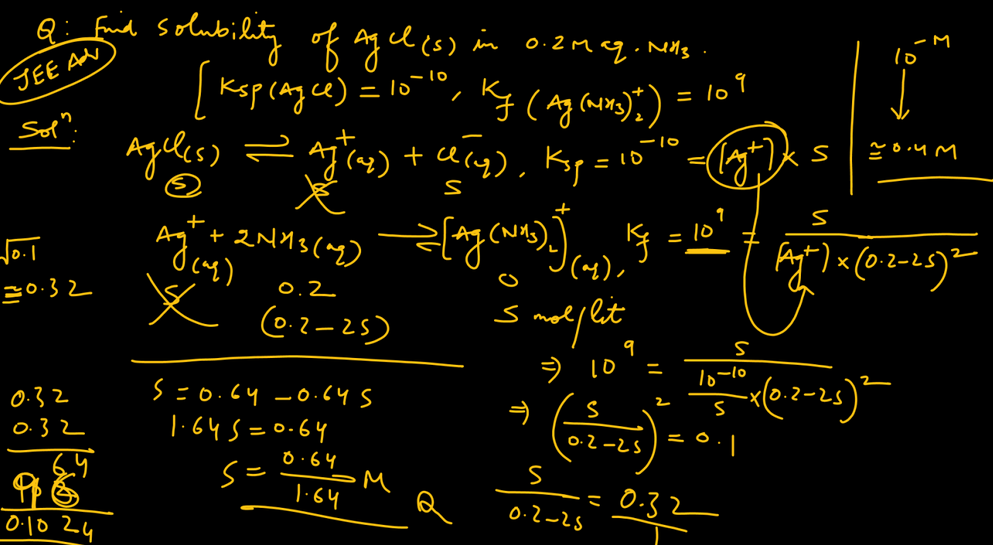 Q: Find solubility of AgCl(s) in 0.2M aq. NH3.
JEE Adv
[Ksp(AgCl) = 10^-10, Kf (Ag(NH3)2^+) = 10^9
Sol^n:
AgCl(s) ⇌ Ag^+(aq) + Cl^-(aq), Ksp = 10^-10 = [Ag^+] × S
S S S
10^-M
↓
≅ 0.4 M
Ag^+(aq) + 2NH3(aq) ⇌ [Ag(NH3)2]^+(aq), Kf = 10^9 = S / [Ag^+] × (0.2-2S)^2
S 0.2 0
(0.2-2S) S mol/lit
√0.1
≅ 0.32
⇒ 10^9 = S / (10^-10/S × (0.2-2S)^2)
⇒ (S / 0.2-2S)^2 = 0.1
S / 0.2-2S = 0.32 / 1
S = 0.64 - 0.64 S
1.64 S = 0.64
S = 0.64 / 1.64 M
Q
0.32
0.32
64
0.1024